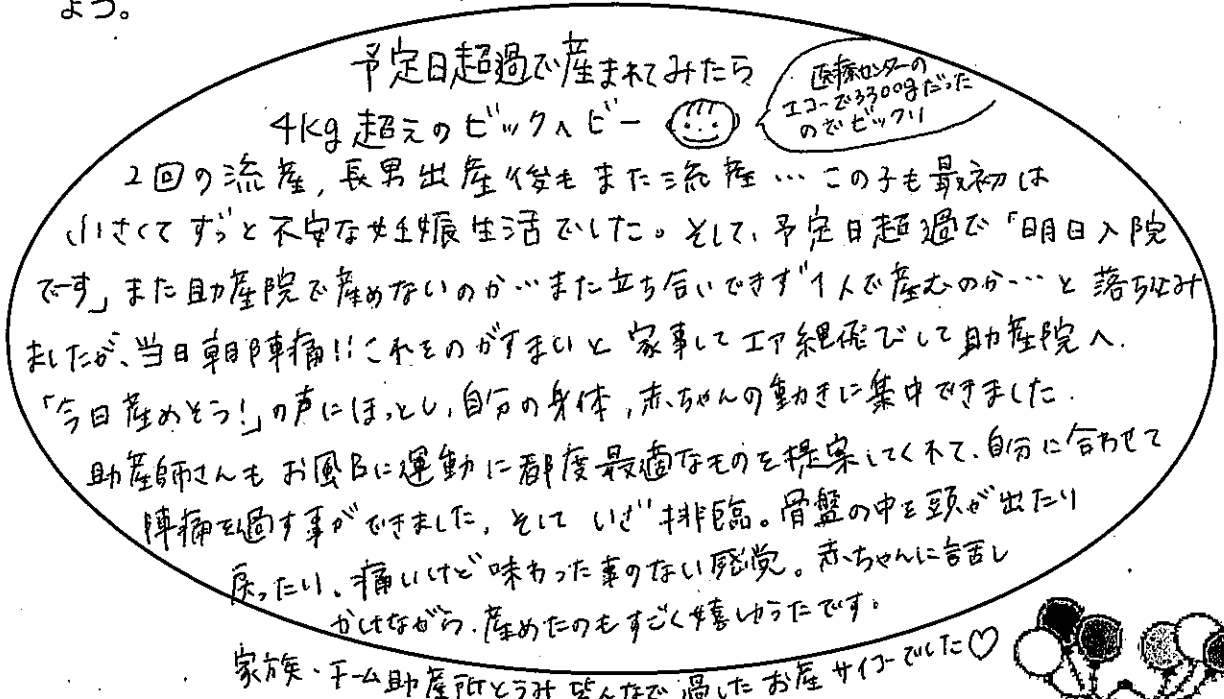 ょう。
予定日超過で産まれてみたら
4kg超えのビックベビー
医療センターの
エコーで3300gだった
のでビックリ
2回の流産,長男出産後もまた流産…この子も最初は
小さくてずっと不安な妊娠生活でした。そして、予定日超過で「明日入院
です」また助産院で産めないのか…また立ち合いできず1人で産むのか…と落ち込み
ましたが、当日朝陣痛!!これをのがすまいと家事してエア縄飛びして助産院へ.
「今日産めそう!」の声にほっとし,自分の身体,赤ちゃんの動きに集中できました.
助産師さんもお風呂に運動に都度最適なものを提案してくれて、自分に合わせて
陣痛を過す事ができました。そしていざ排臨。骨盤の中を頭が出たり
戻ったり。痛いけど味わった事のない感覚。赤ちゃんに話し
かけながら.産めたのもすごく嬉しかったです。
家族・チーム助産所 皆んなで過したお産サイコーでした♡